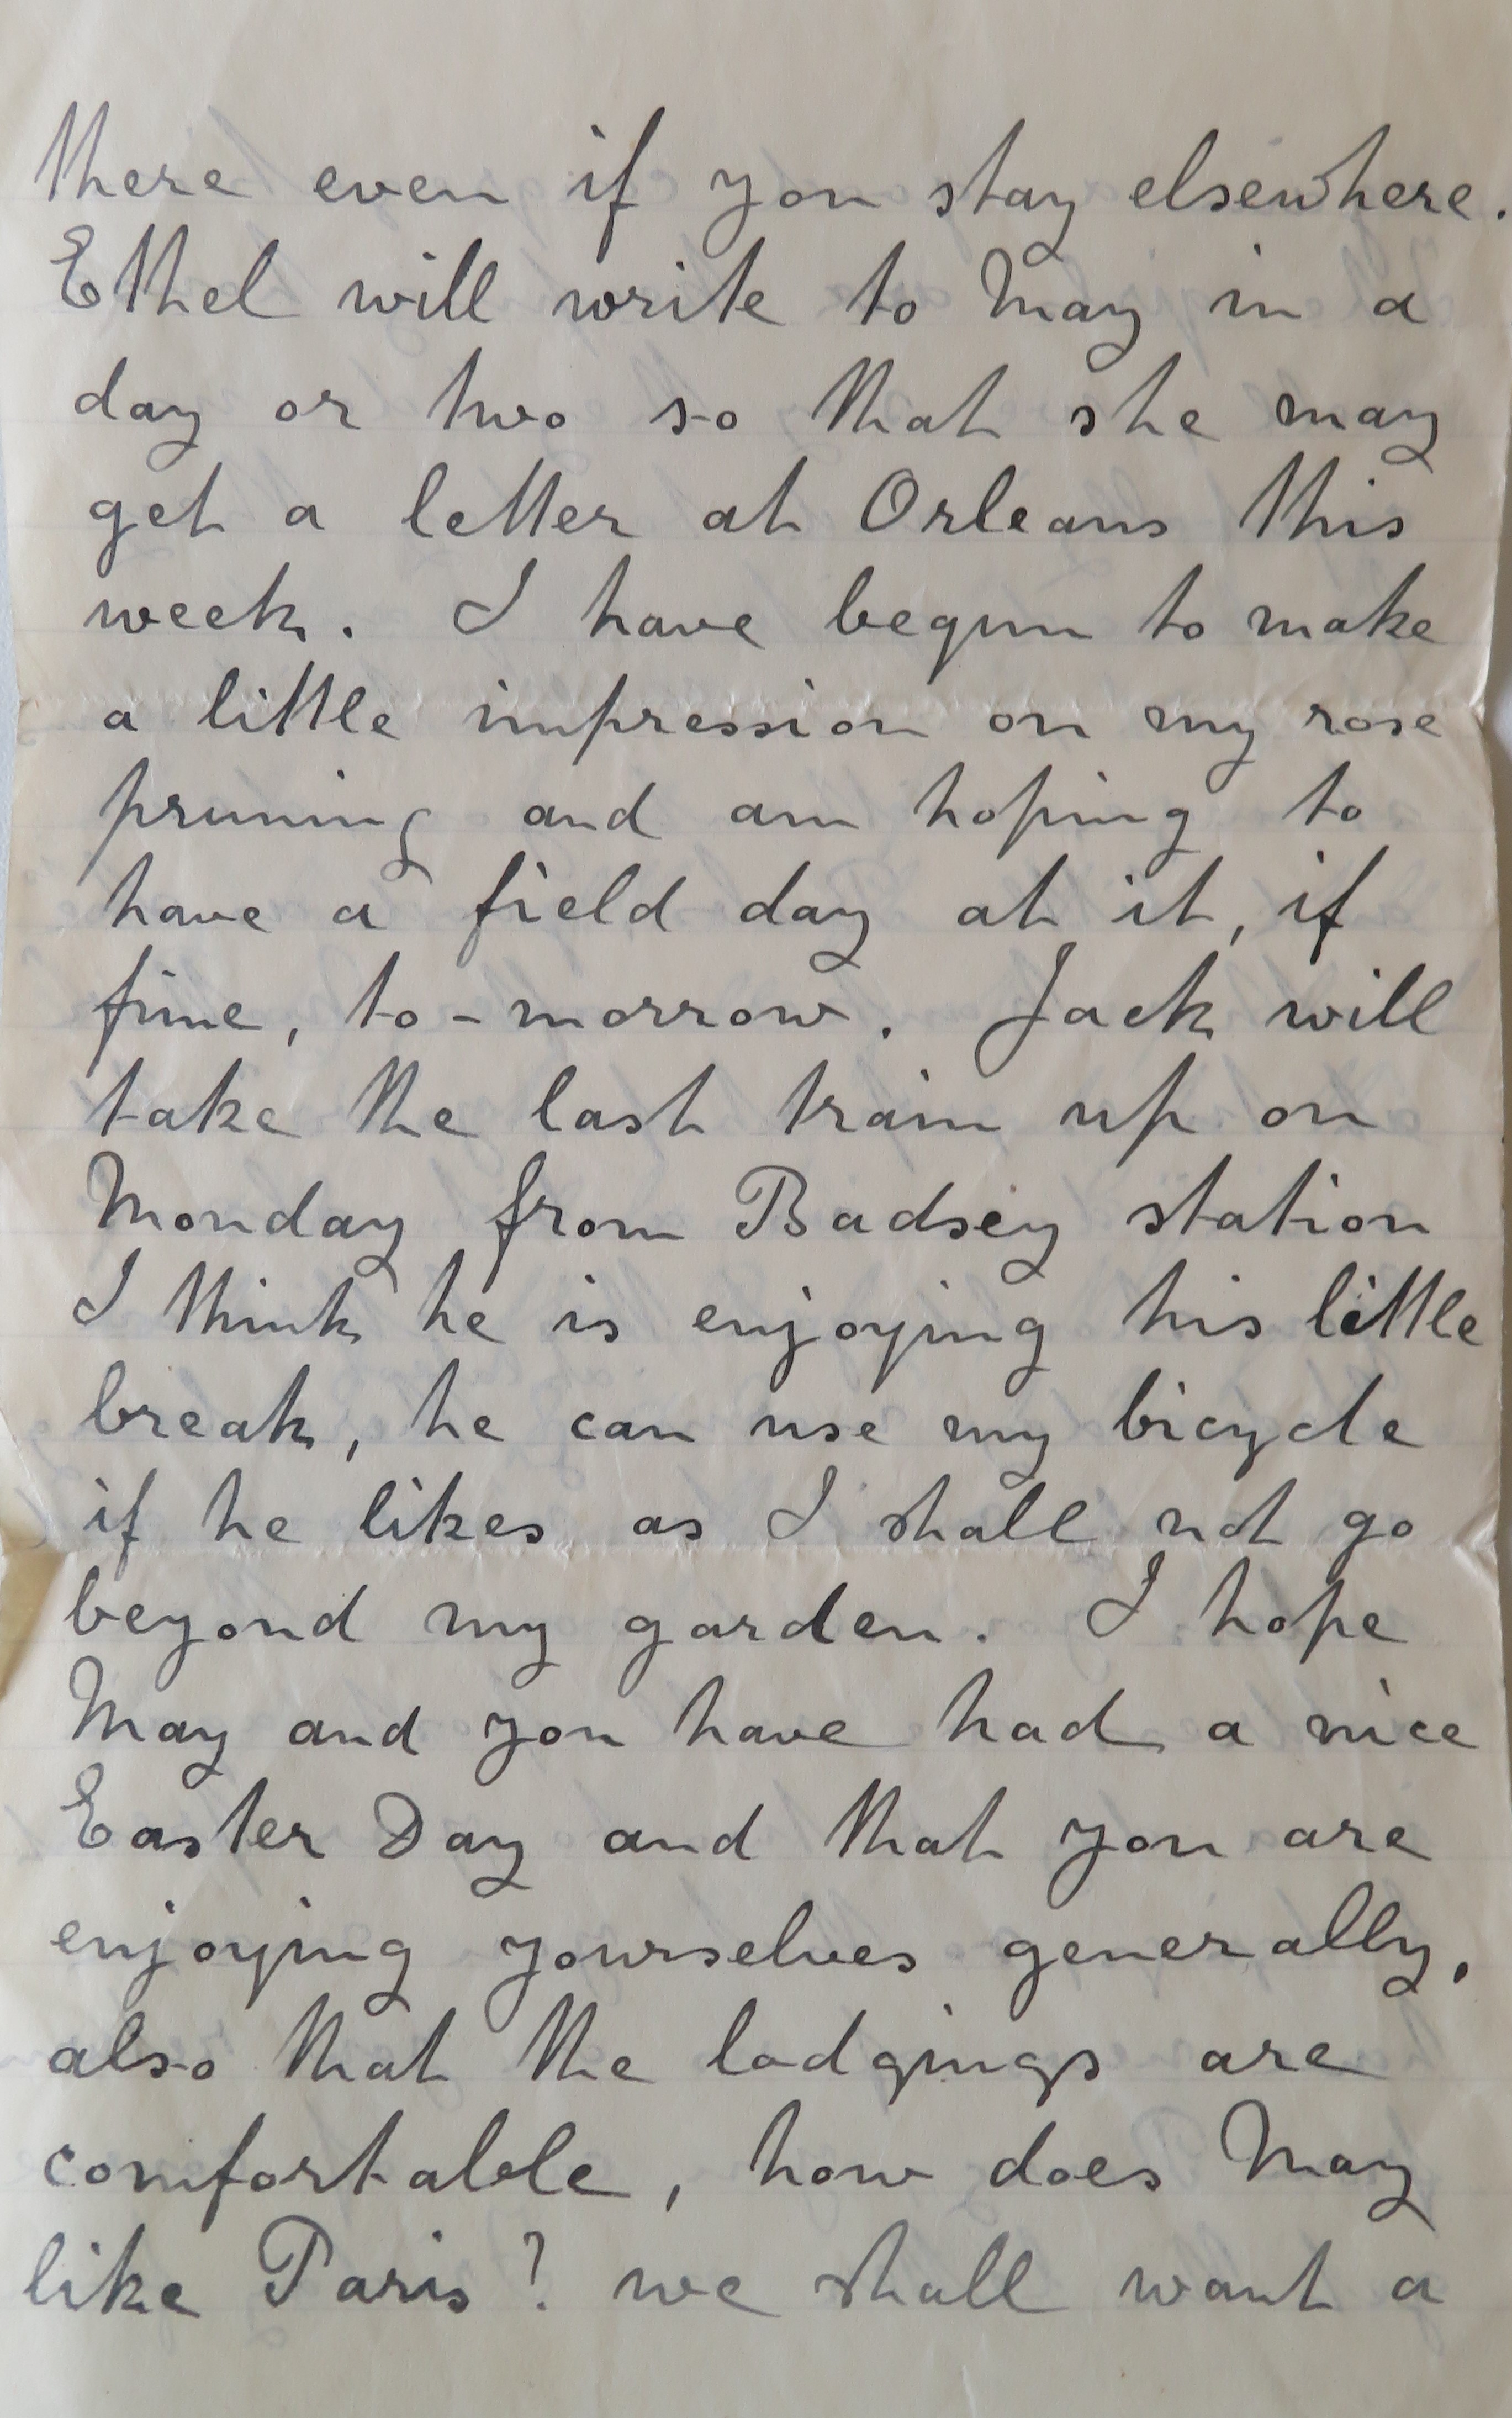 there even if you stay elsewhere.
Ethel will write to May in a
day or two so that she may
get a letter at Orleans this
week. I have begun to make
a little impression on my rose
pruning and am hoping to
have a field day at it, if
fine, to-morrow. Jack will
take the last train up on
Monday from Badsey station
I think he is enjoying his little
break, he can use my bicycle
if he likes as I shall not go
beyond my garden. I hope
May and you have had a nice
Easter Day and that you are
enjoying yourselves generally,
also that the lodgings are
comfortable, how does May
like Paris? we shall want a